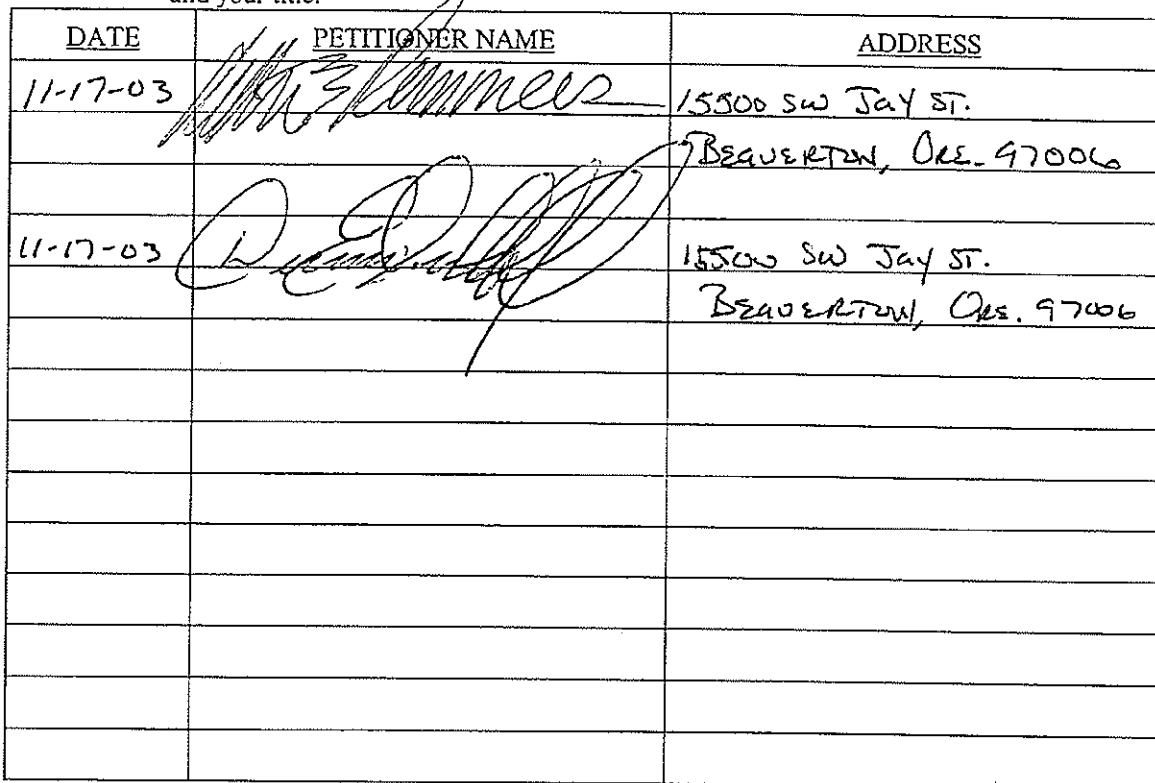 and your title.
DATE PETITIONER NAME ADDRESS
11-17-03 15500 SW Jay ST.
BEAVERTON, ORE. 97006
11-17-03 15500 SW Jay ST.
BEAVERTON, ORE. 97006